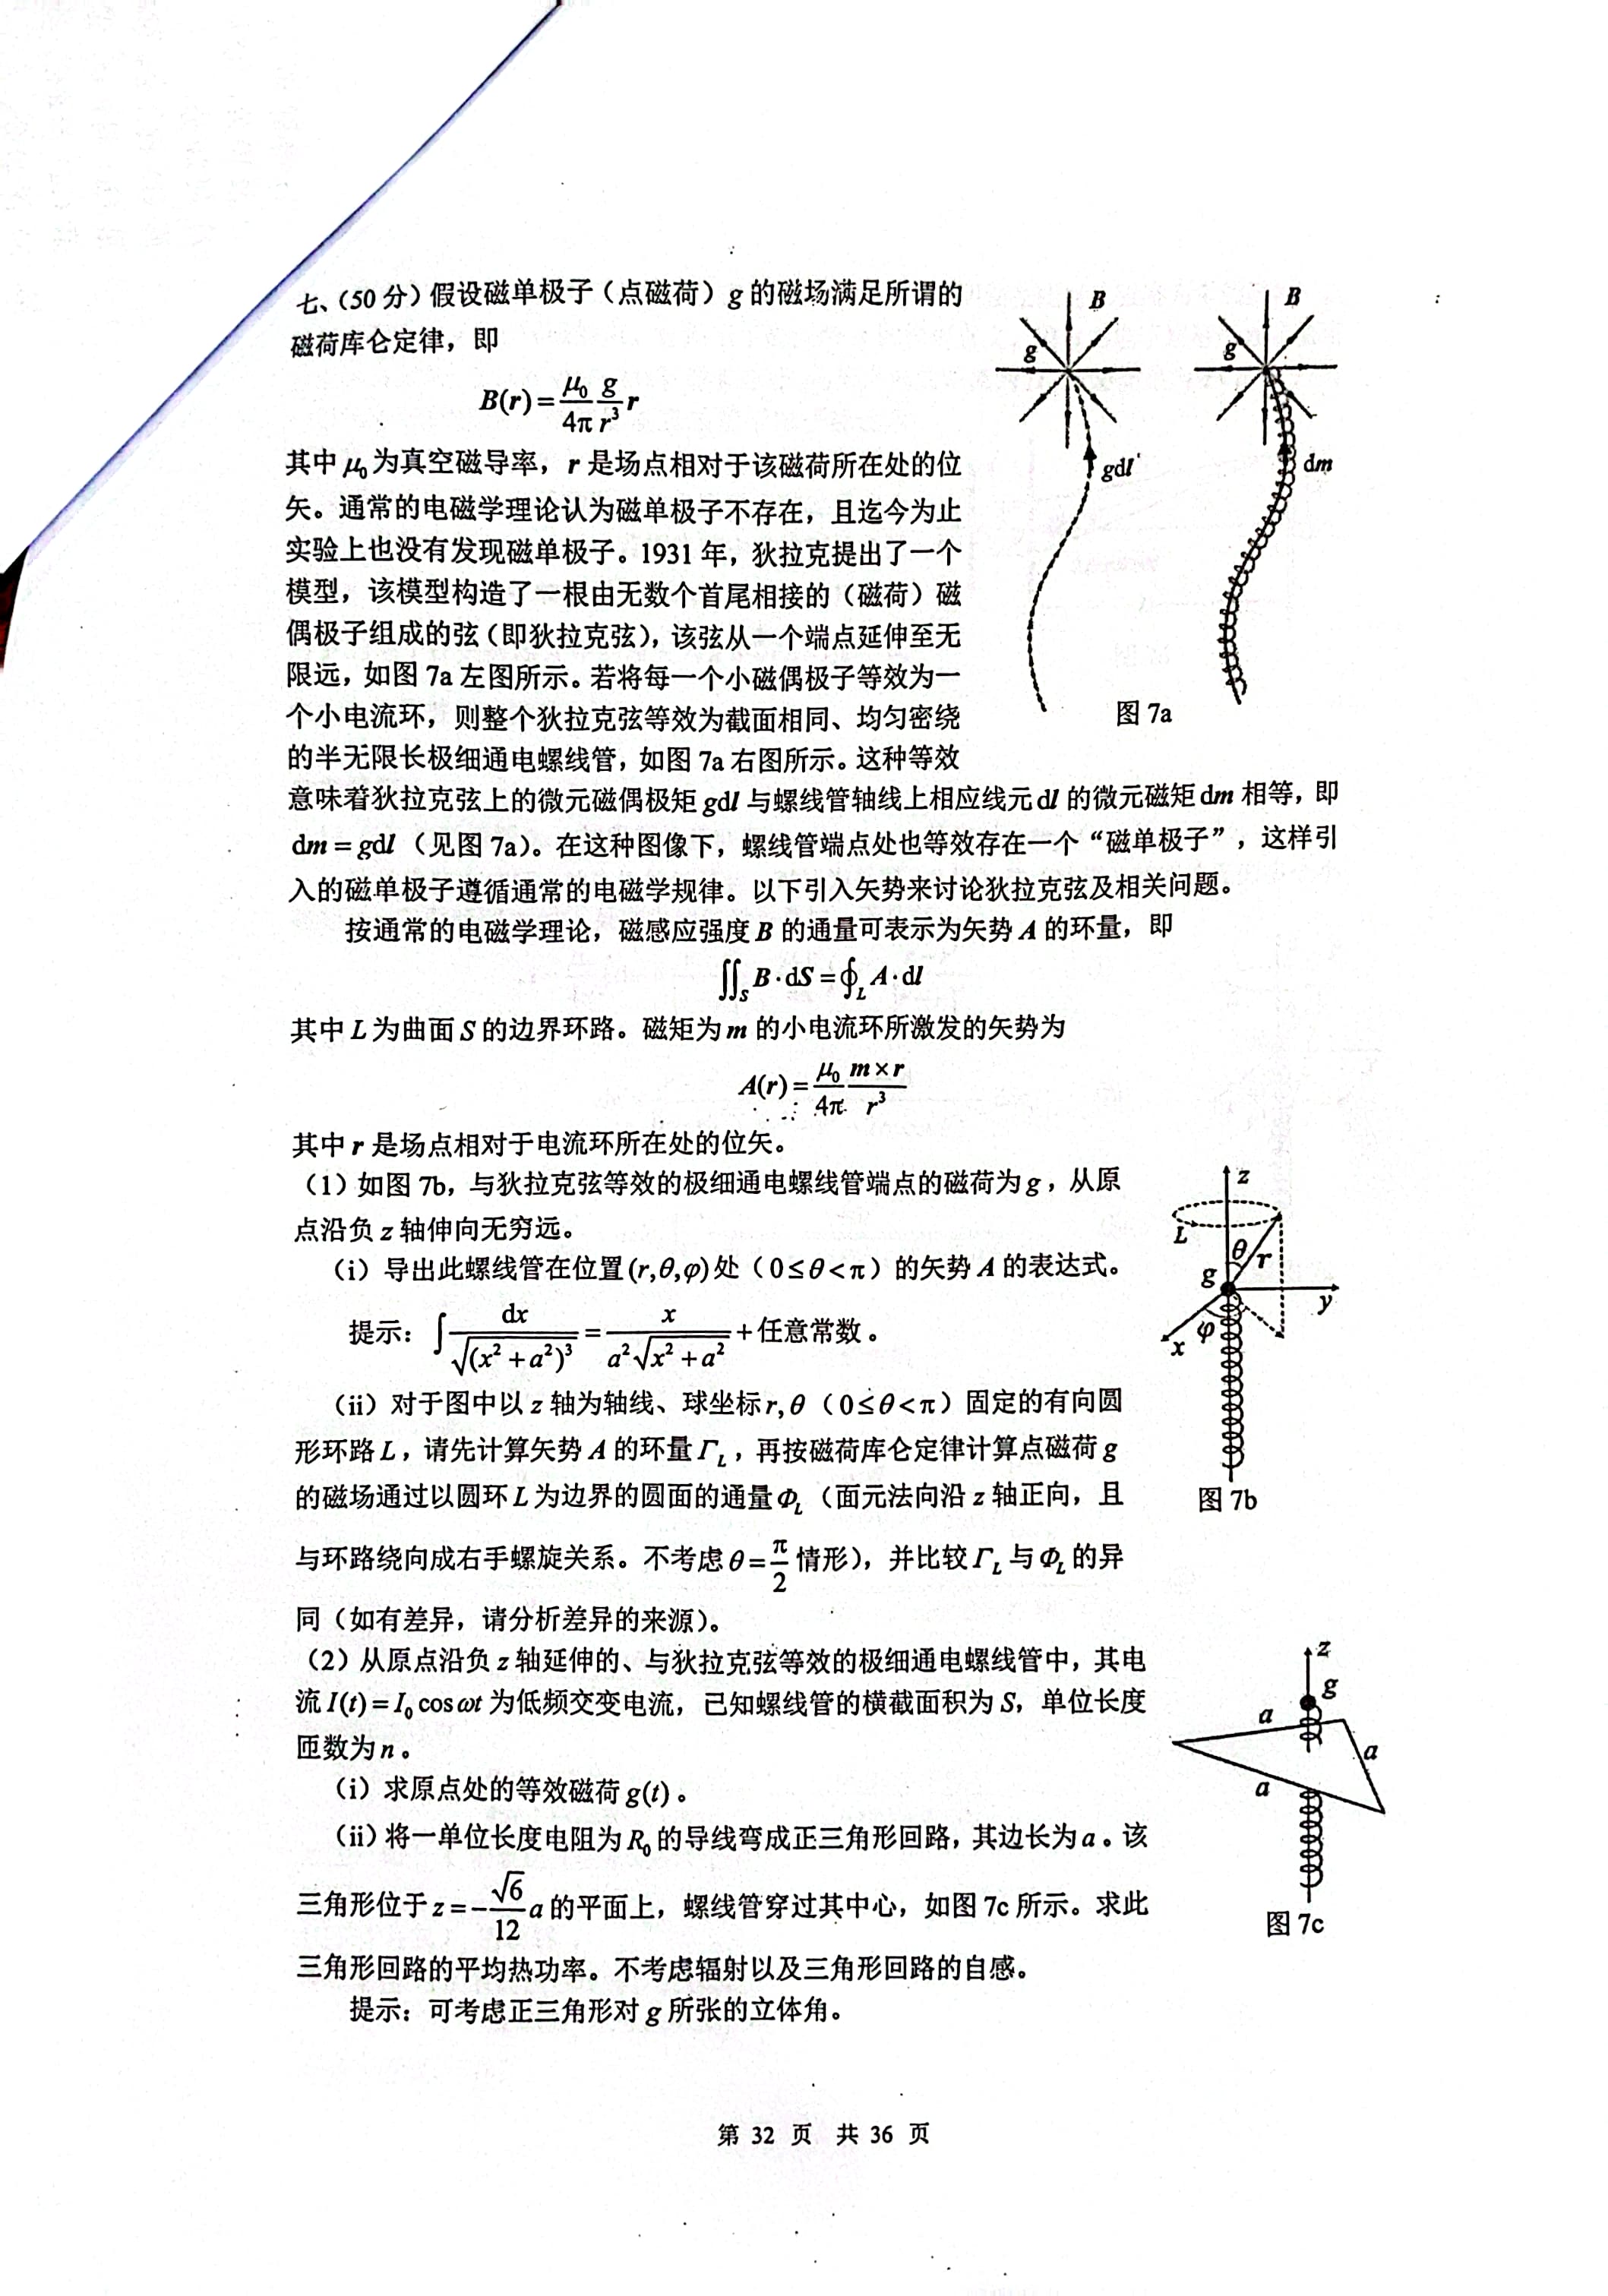 七、(50分)假设磁单极子(点磁荷)g的磁场满足所谓的
磁荷库仑定律，即
B(r)=\frac{μ₀}{4π}\frac{g}{r³}r
其中μ₀为真空磁导率，r是场点相对于该磁荷所在处的位
矢。通常的电磁学理论认为磁单极子不存在，且迄今为止
实验上也没有发现磁单极子。1931年，狄拉克提出了一个
模型，该模型构造了一根由无数个首尾相接的(磁荷)磁
偶极子组成的弦(即狄拉克弦)，该弦从一个端点延伸至无
限远，如图7a左图所示。若将每一个小磁偶极子等效为一
个小电流环，则整个狄拉克弦等效为截面相同、均匀密绕
的半无限长极细通电螺线管，如图7a右图所示。这种等效
B
g
gdl
B
g
dm
图7a
意味着狄拉克弦上的微元磁偶极矩gdl与螺线管轴线上相应线元dl的微元磁矩dm相等，即
dm=gdl(见图7a)。在这种图像下，螺线管端点处也等效存在一个“磁单极子”，这样引
入的磁单极子遵循通常的电磁学规律。以下引入矢势来讨论狄拉克弦及相关问题。
按通常的电磁学理论，磁感应强度B的通量可表示为矢势A的环量，即
∬_S B·dS=∮_L A·dl
其中L为曲面S的边界环路。磁矩为m的小电流环所激发的矢势为
A(r)=\frac{μ₀}{4π}\frac{m×r}{r³}
其中r是场点相对于电流环所在处的位矢。
(1)如图7b，与狄拉克弦等效的极细通电螺线管端点的磁荷为g，从原
点沿负z轴伸向无穷远。
(i)导出此螺线管在位置(r,θ,φ)处(0≤θ<π)的矢势A的表达式。
提示：∫\frac{dx}{\sqrt{(x²+a²)³}}=\frac{x}{a²\sqrt{x²+a²}}+任意常数。
(ii)对于图中以z轴为轴线、球坐标r,θ(0≤θ<π)固定的有向圆
形环路L，请先计算矢势A的环量Γ_L，再按磁荷库仑定律计算点磁荷g
的磁场通过以圆环L为边界的圆面的通量Φ_L(面元法向沿z轴正向，且
与环路绕向成右手螺旋关系。不考虑θ=\frac{π}{2}情形)，并比较Γ_L与Φ_L的异
同(如有差异，请分析差异的来源)。
z
L
θ
r
g
y
x
φ
图7b
(2)从原点沿负z轴延伸的、与狄拉克弦等效的极细通电螺线管中，其电
流I(t)=I₀cosωt为低频交变电流，已知螺线管的横截面积为S，单位长度
匝数为n。
(i)求原点处的等效磁荷g(t)。
(ii)将一单位长度电阻为R₀的导线弯成正三角形回路，其边长为a。该
三角形位于z=-\frac{\sqrt{6}}{12}a的平面上，螺线管穿过其中心，如图7c所示。求此
三角形回路的平均热功率。不考虑辐射以及三角形回路的自感。
提示：可考虑正三角形对g所张的立体角。
z
g
a
a
a
图7c
第 32 页 共 36 页